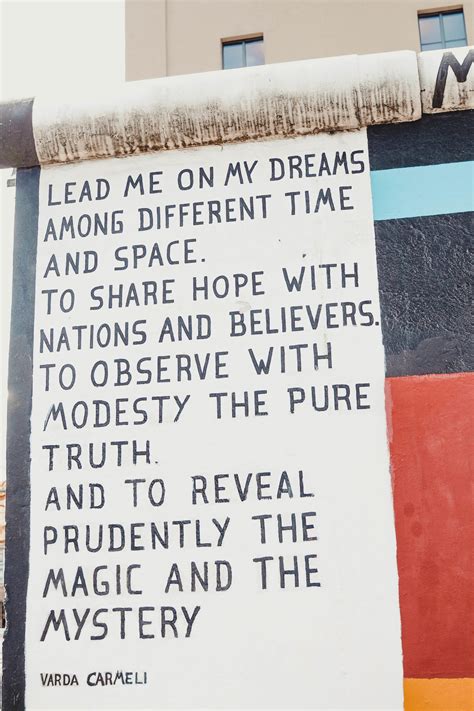 M
LEAD ME ON MY DREAMS
AMONG DIFFERENT TIME
AND SPACE.
TO SHARE HOPE WITH
NATIONS AND BELIEVERS.
TO OBSERVE WITH
MODESTY THE PURE
TRUTH.
AND TO REVEAL
PRUDENTLY THE
MAGIC AND THE
MYSTERY
VARDA CARMELI